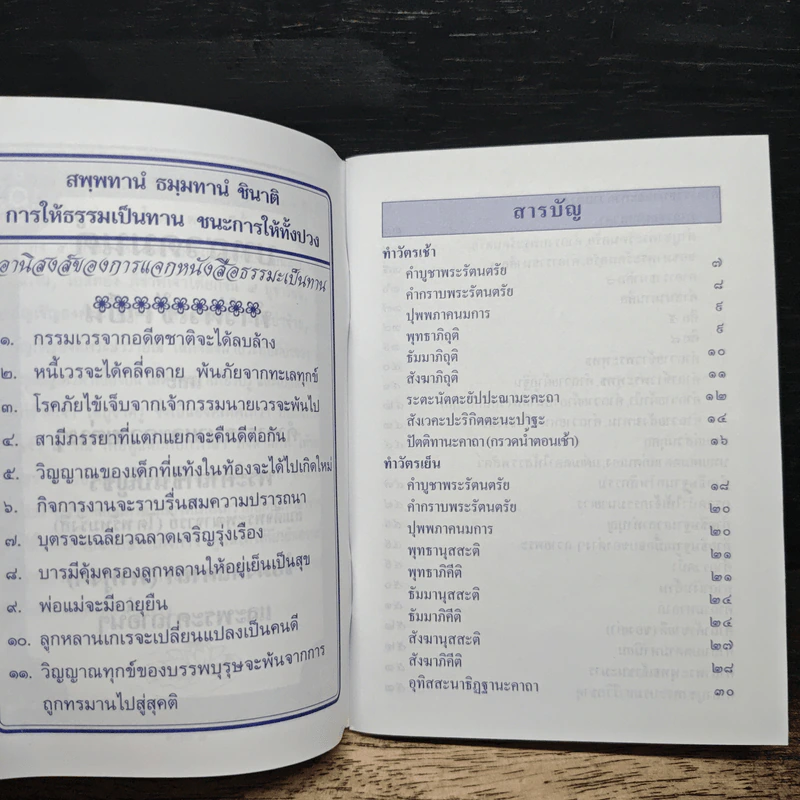 สพฺพทานํ ธมฺมทานํ ชินาติ
การให้ธรรมเป็นทาน ชนะการให้ทั้งปวง
อานิสงส์ของการแจกหนังสือธรรมะเป็นทาน
๑. กรรมเวรจากอดีตชาติจะได้ลบล้าง
๒. หนี้เวรจะได้คลี่คลาย พ้นภัยจากทะเลทุกข์
๓. โรคภัยไข้เจ็บจากเจ้ากรรมนายเวรจะพ้นไป
๔. สามีภรรยาที่แตกแยกจะคืนดีต่อกัน
๕. วิญญาณของเด็กที่แท้งในท้องจะได้ไปเกิดใหม่
๖. กิจการงานจะราบรื่นสมความปรารถนา
๗. บุตรจะเฉลียวฉลาดเจริญรุ่งเรือง
๘. บารมีคุ้มครองลูกหลานให้อยู่เย็นเป็นสุข
๙. พ่อแม่จะมีอายุยืน
๑๐. ลูกหลานเกเรจะเปลี่ยนแปลงเป็นคนดี
๑๑. วิญญาณทุกข์ของบรรพบุรุษจะพ้นจากการ
ถูกทรมานไปสู่สุคติ
สารบัญ
ทำวัตรเช้า
คำบูชาพระรัตนตรัย ๗
คำกราบพระรัตนตรัย ๘
ปุพพภาคนมการ ๙
พุทธาภิถุติ ๙
ธัมมาภิถุติ ๑๐
สังฆาภิถุติ ๑๑
ระตะนัตตะยัปปะณามะคะถา ๑๒
สังเวคะปะริกิตตะนะปาฐะ ๑๔
ปัตติทานะคาถา (กรวดน้ำตอนเช้า) ๑๖
ทำวัตรเย็น
คำบูชาพระรัตนตรัย ๑๘
คำกราบพระรัตนตรัย ๒๐
ปุพพภาคนมการ ๒๐
พุทธานุสสะติ ๒๑
พุทธาภิคีติ ๒๑
ธัมมานุสสะติ ๒๔
ธัมมาภิคีติ ๒๔
สังฆานุสสะติ ๒๗
สังฆาภิคีติ ๒๘
อุทิสสะนาธิฏฐานะคาถา ๓๐